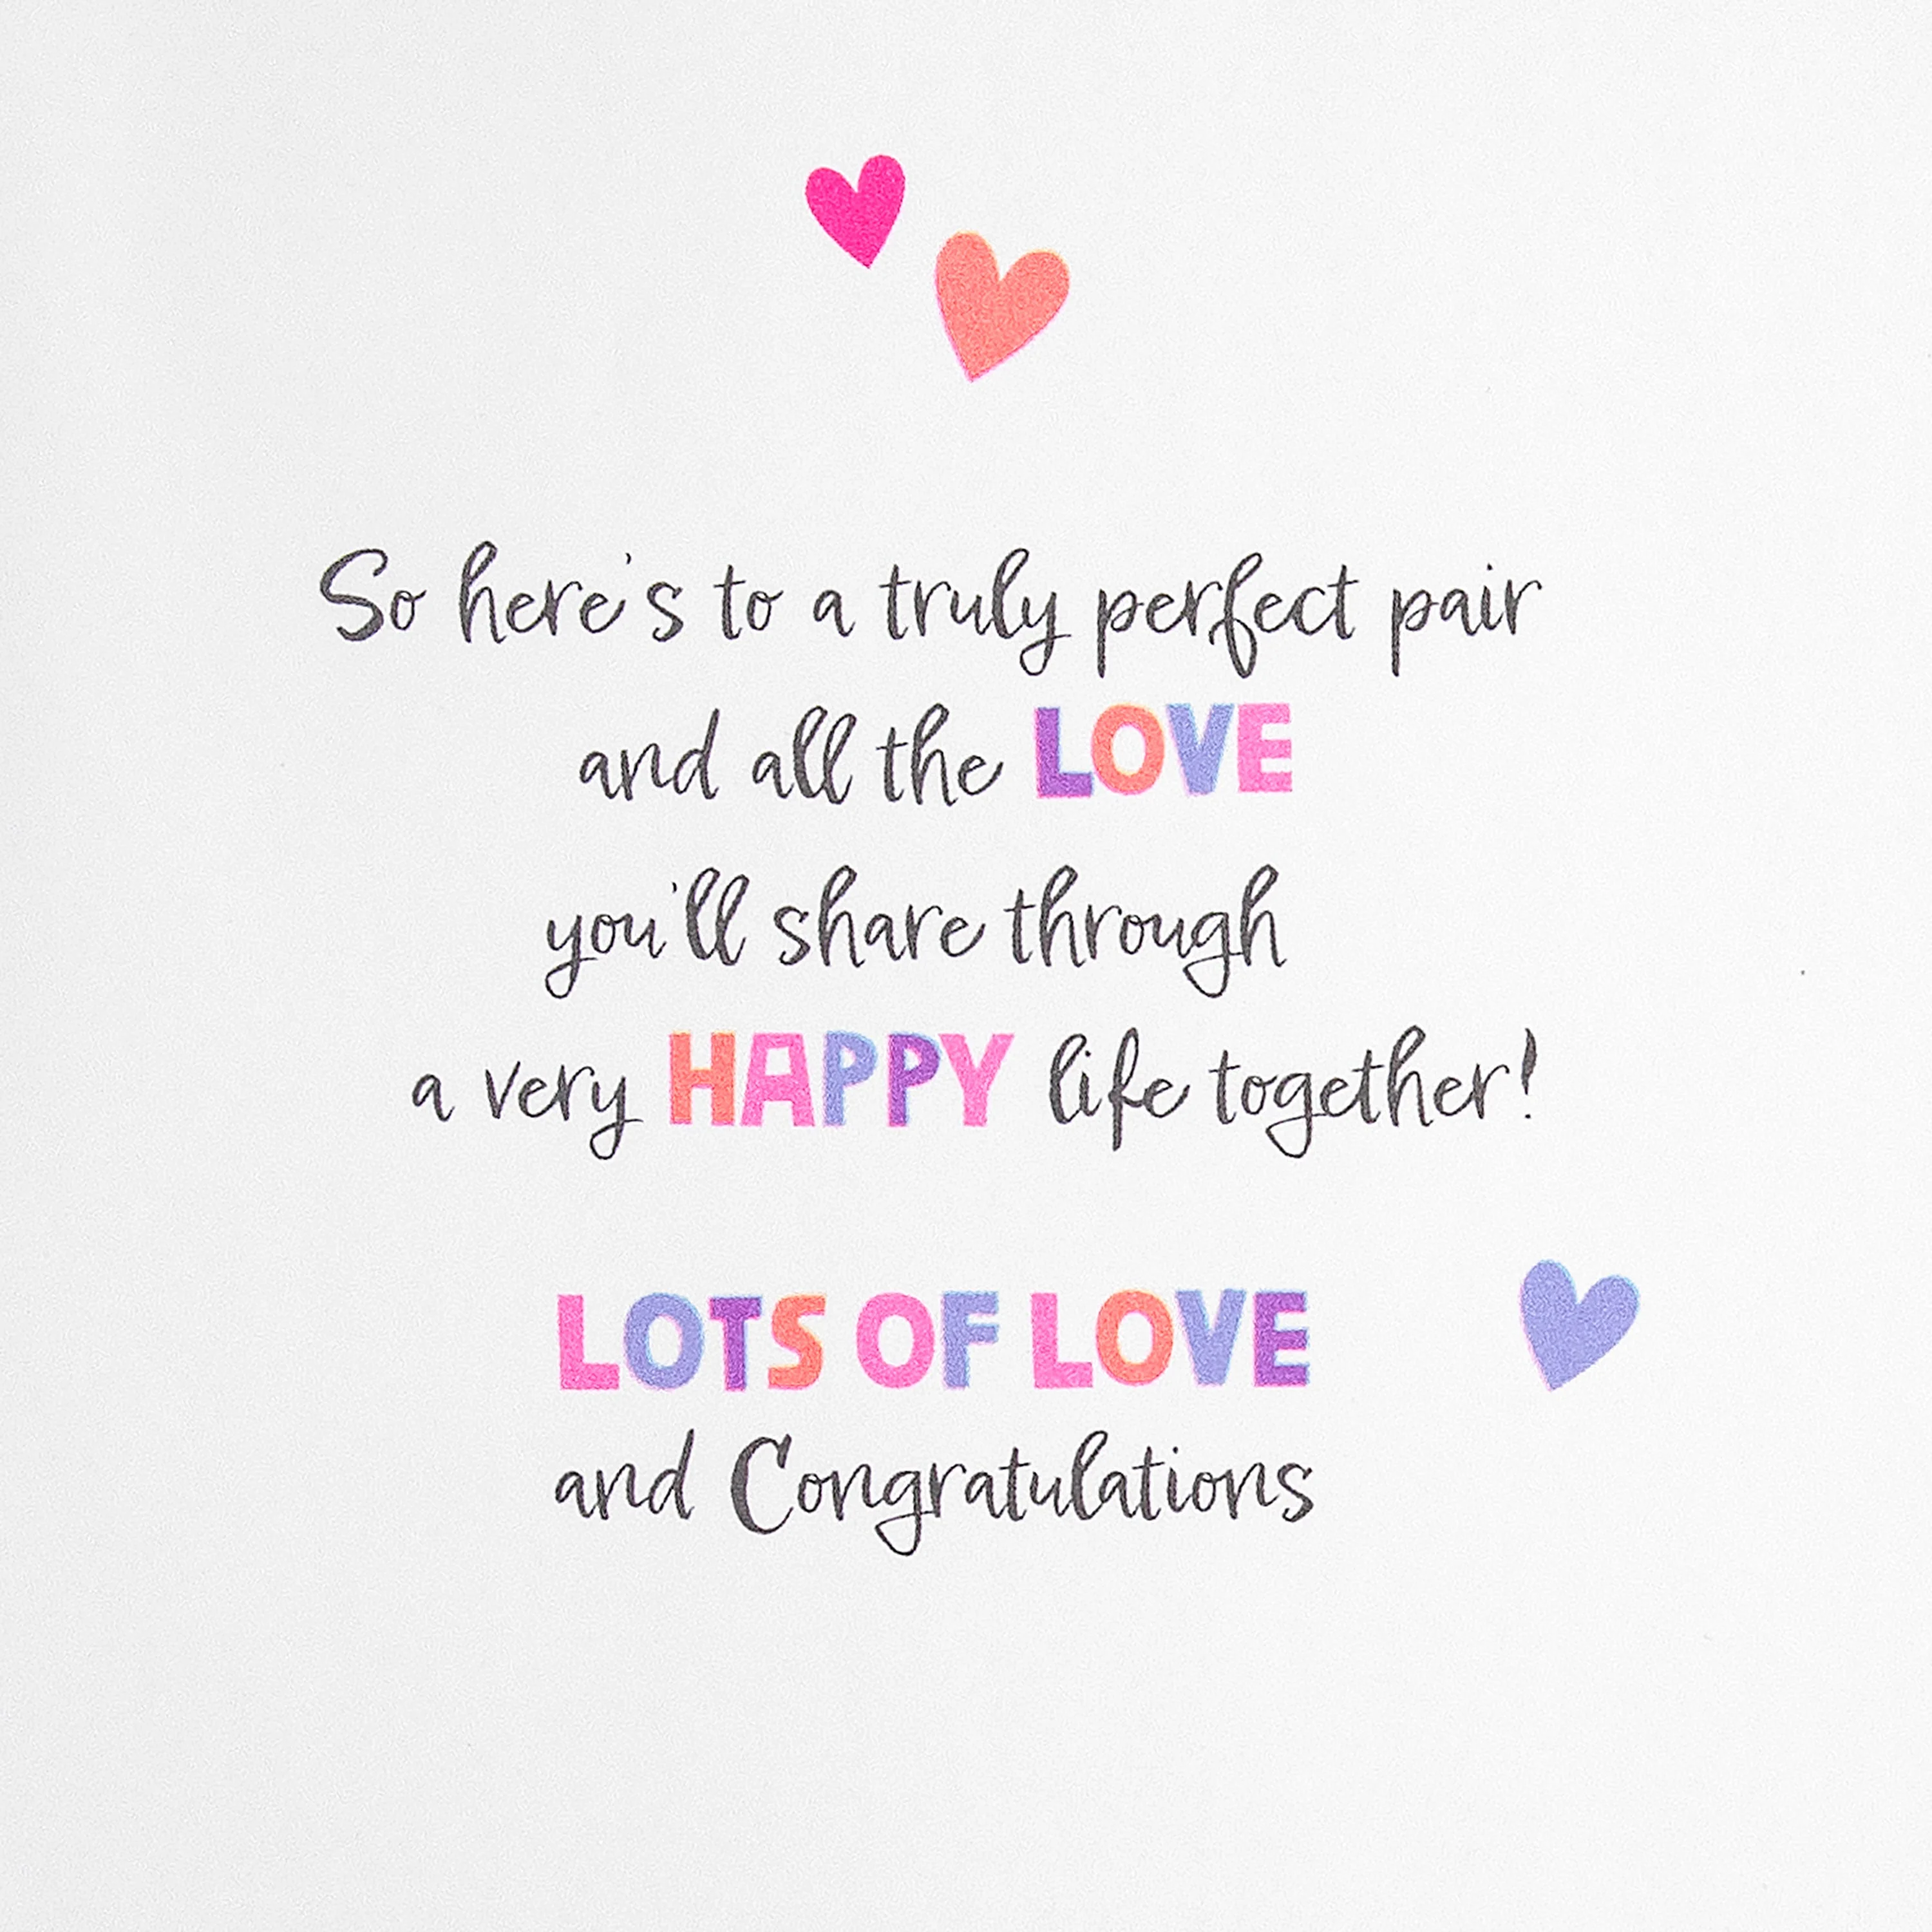 So here's to a truly perfect pair
and all the LOVE
you'll share through
a very HAPPY life together!
LOTS OF LOVE
and Congratulations